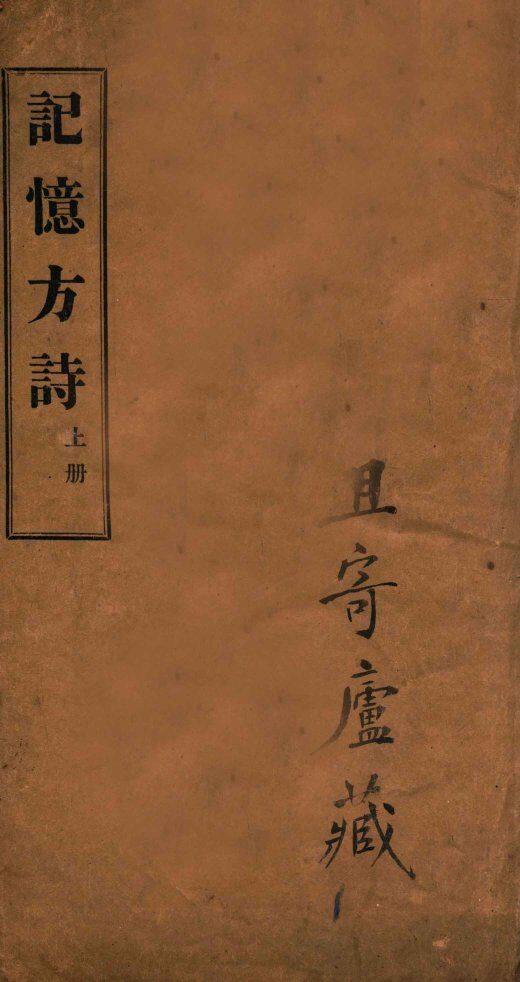 記憶方詩
上册
且寄廬藏